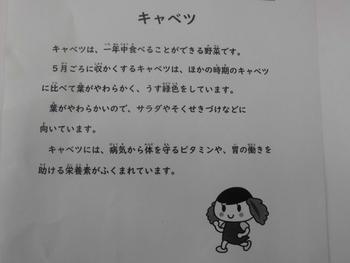 キャベツ
キャベツは、一年中食べることができる野菜です。
５月ごろに収かくするキャベツは、ほかの時期のキャベツ
に比べて葉がやわらかく、うす緑色をしています。
葉がやわらかいので、サラダやそくせきづけなどに
向いています。
キャベツには、病気から体を守るビタミンや、胃の働きを
助ける栄養素がふくまれています。